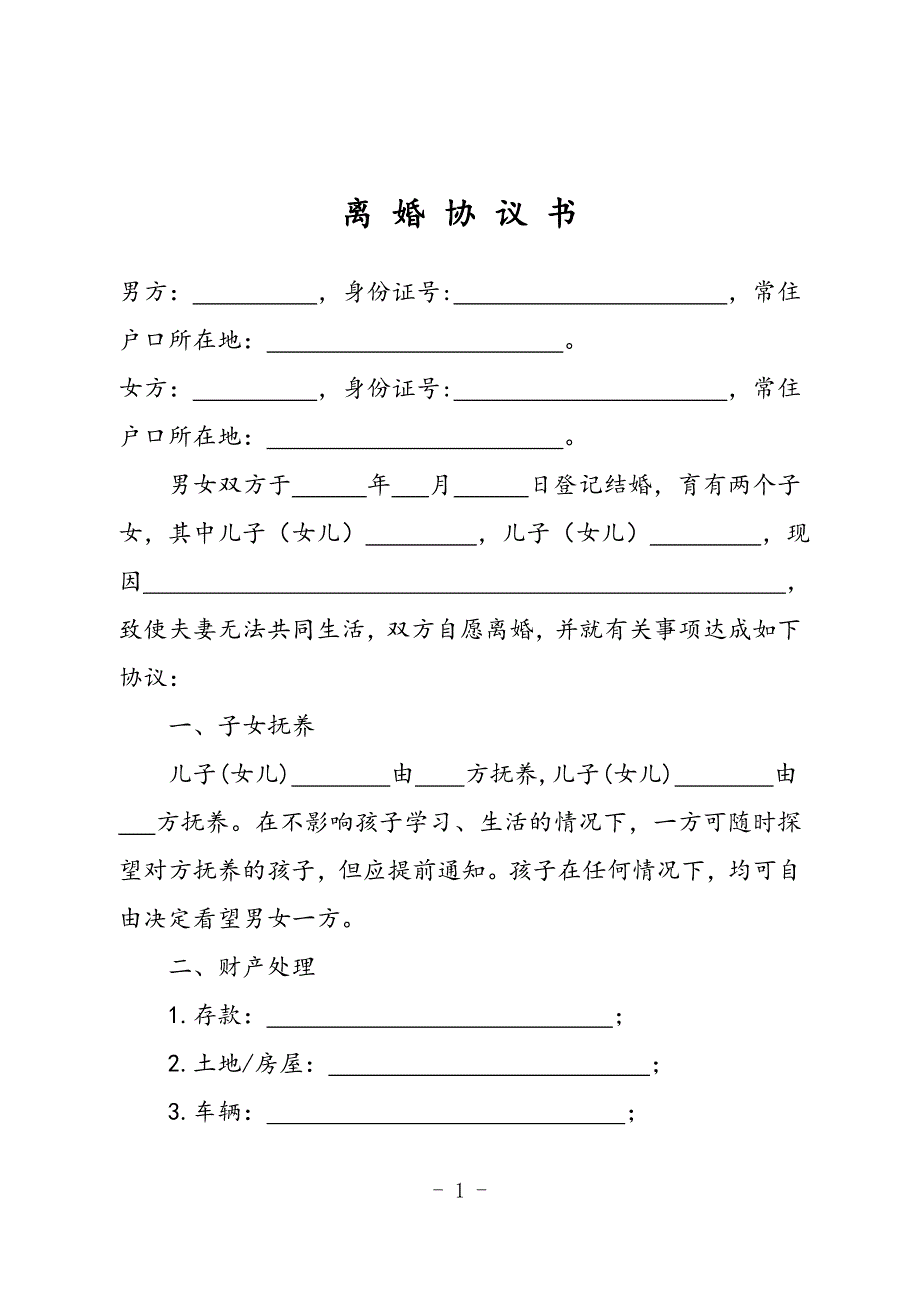 离 婚 协 议 书
男方：__________，身份证号:______________________，常住
户口所在地：________________________。
女方：__________，身份证号:______________________，常住
户口所在地：________________________。
男女双方于______年___月______日登记结婚，育有两个子
女，其中儿子（女儿）_________，儿子（女儿）_________，现
因____________________________________________________，
致使夫妻无法共同生活，双方自愿离婚，并就有关事项达成如下
协议：
一、子女抚养
儿子(女儿)________由____方抚养,儿子(女儿)________由
___方抚养。在不影响孩子学习、生活的情况下，一方可随时探
望对方抚养的孩子，但应提前通知。孩子在任何情况下，均可自
由决定看望男女一方。
二、财产处理
1.存款：____________________________；
2.土地/房屋：__________________________；
3.车辆：_____________________________；
- 1 -